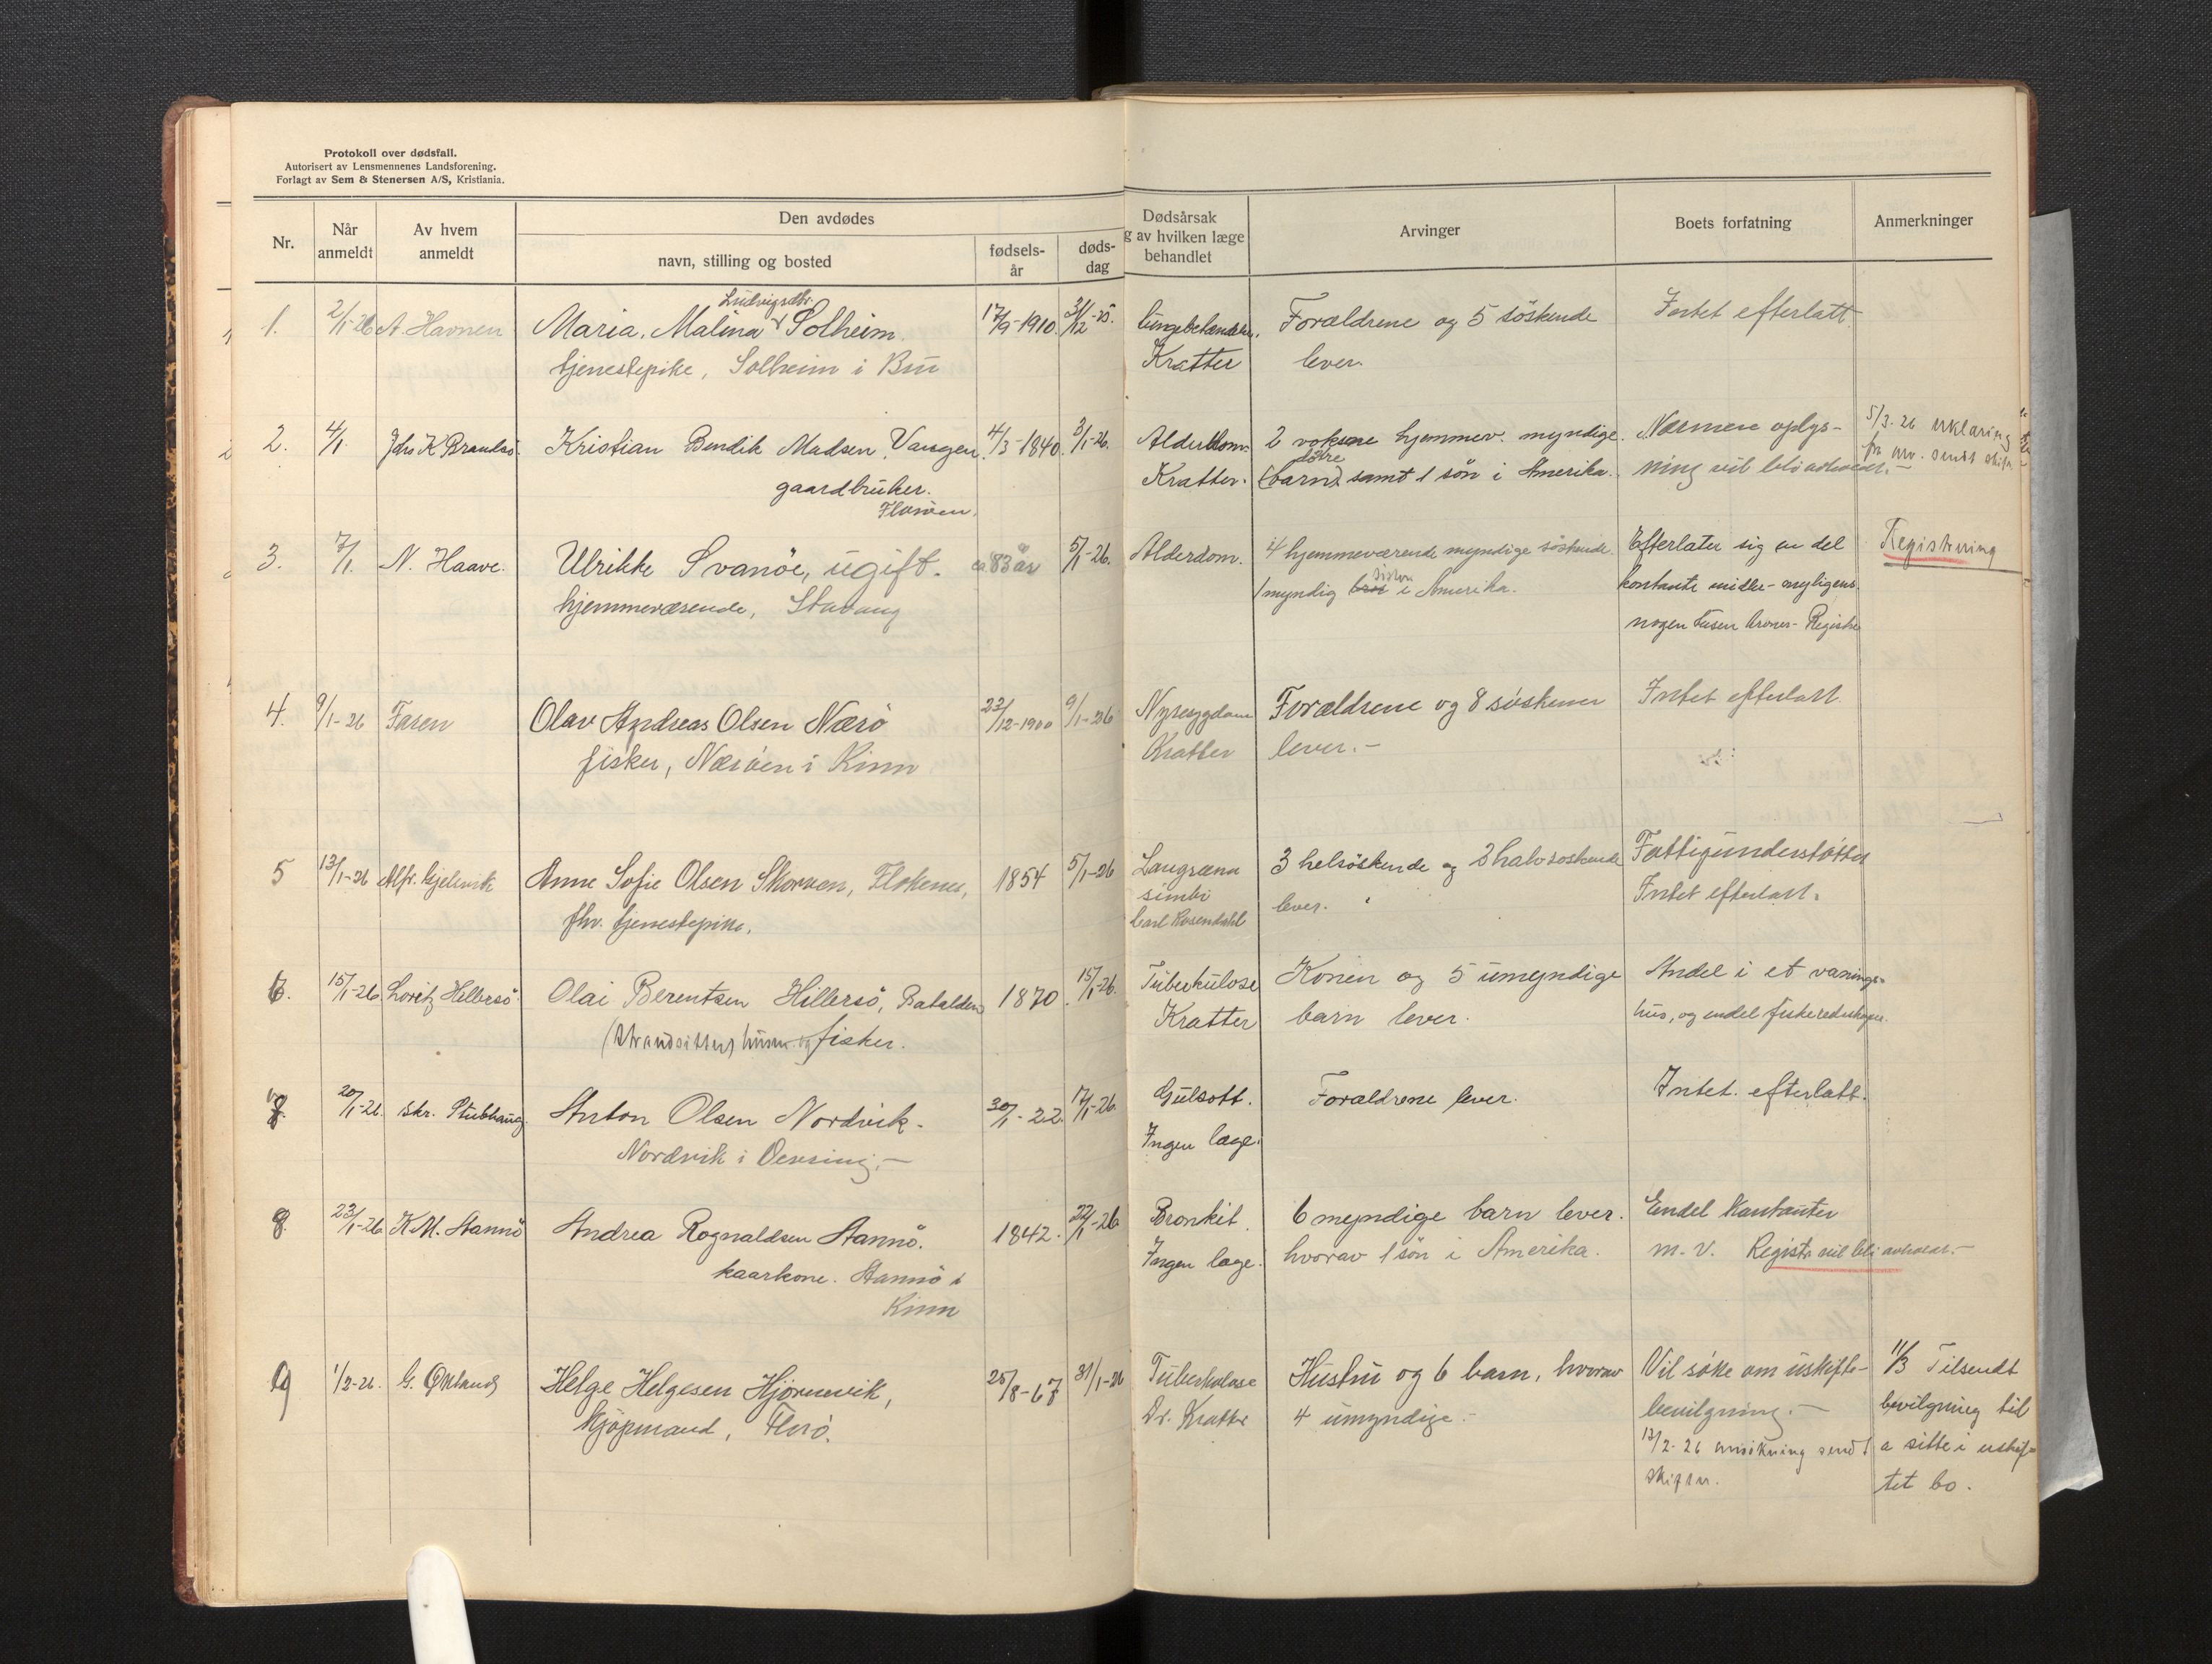 Protokoll over dødsfall.
Autorisert av Lensmennenes Landsforening.
Forlagt av Sem & Stenersen A/S, Kristiania.
Nr.
Når anmeldt
Av hvem anmeldt
Den avdødes
navn, stilling og bosted
fødsels-år
døds-dag
Dødsårsak
g av hvilken læge
behandlet
Arvinger
Boets forfatning
Anmerkninger
1. 2/1-26 A. Havnen
Ludvigsdtr.
Maria. Malina Solheim.
tjenestepike, Solheim i Bru
17/9-1910. 31/12-25.
Kratter
Forældrene og 5 söskende
lever.
Intet efterlatt
2. 4/1. Johs K Brandsö.
Kristian Bendik Madsen, Vangen
gaardbruker.
Floröen.
4/3-1840. 3/1-26.
Alderdom.
Kratter.
2 voksne hjemmev. myndige
døtre
(barn) samt 1 sön i Amerika.
Nærmere oplys-
ning vil bli avholdt.-
5/3. 26 erklæring
fra arv. sendt skifr.
3. 7/1. N. Haave.
Ulrikke Svanöe, ugift.
hjemmeværende, Stavang
ca 83 år 5/1-26.
Alderdom.
4 hjemmeværende myndige söskende.
1 myndig bror i Amerika.
Efterlater sig en del
kontante midler -
nogen tusen kroner - Registre
Registrering
4. 9/1-26 Faren
Olav Andreas Olsen Nærö
fisker, Næröen i Kinn
22/12-1900 9/1-26
Nyresygdom
Kratter
Forældrene og 8 söskener
lever.-
Intet efterlatt.
5 13/1-26 Alfr. Gjelsvik
Anne Sofie Olsen Skorven, Flokenes,
fhv. tjenestepike.
1854 5/1-26
Carl Rosendahl
3 helsöskende og 2 halvsöskende
lever.
Fattigunderstöttet
Intet efterlatt.
6. 15/1-26 Loritz Hellersö.
Olai Berentsen Hillersö, Batalden
(strandsitter) husm. og fisker.
1870. 15/1-26.
Tuberkulose
Kratter
Konen og 5 umyndige
barn lever.
Andel i et vånings-
hus, og endel fiskeredskaper.
7. 20/1-26. skr. Stubhaug
Anton Olsen Nordvik.
Nordvik i
30/1-22. 17/1-26.
Gulsott.
Ingen læge.
Forældrene lever.
Intet. efterlatt.
8. 23/1-26. K M. Stannö
Andrea Rognaldsen Stannö.
kaarkone. Stannö i
Kinn
1842. 22/1-26
Bronkit.
Ingen læge.
6 myndige barn lever.
hvorav 1 sön i Amerika.
Endel Kontanter
m. v. Registr. vil bli avholdt.-
9 1/2-26. G. Öxland
Helge Helgesen Hjörnevik,
Kjöpmand, Florö.
25/8-67 31/1-26
Tuberkulose
Dr. Kratter
Hustru og 6 barn, hvorav
4 umyndige.-
Vil söke om uskifte-
bevilgning.-
13/2-26 ansökning sendt
skiftr.
11/3 Tilsendt
bevilgning til
a sitte i uskif-
tet bo.